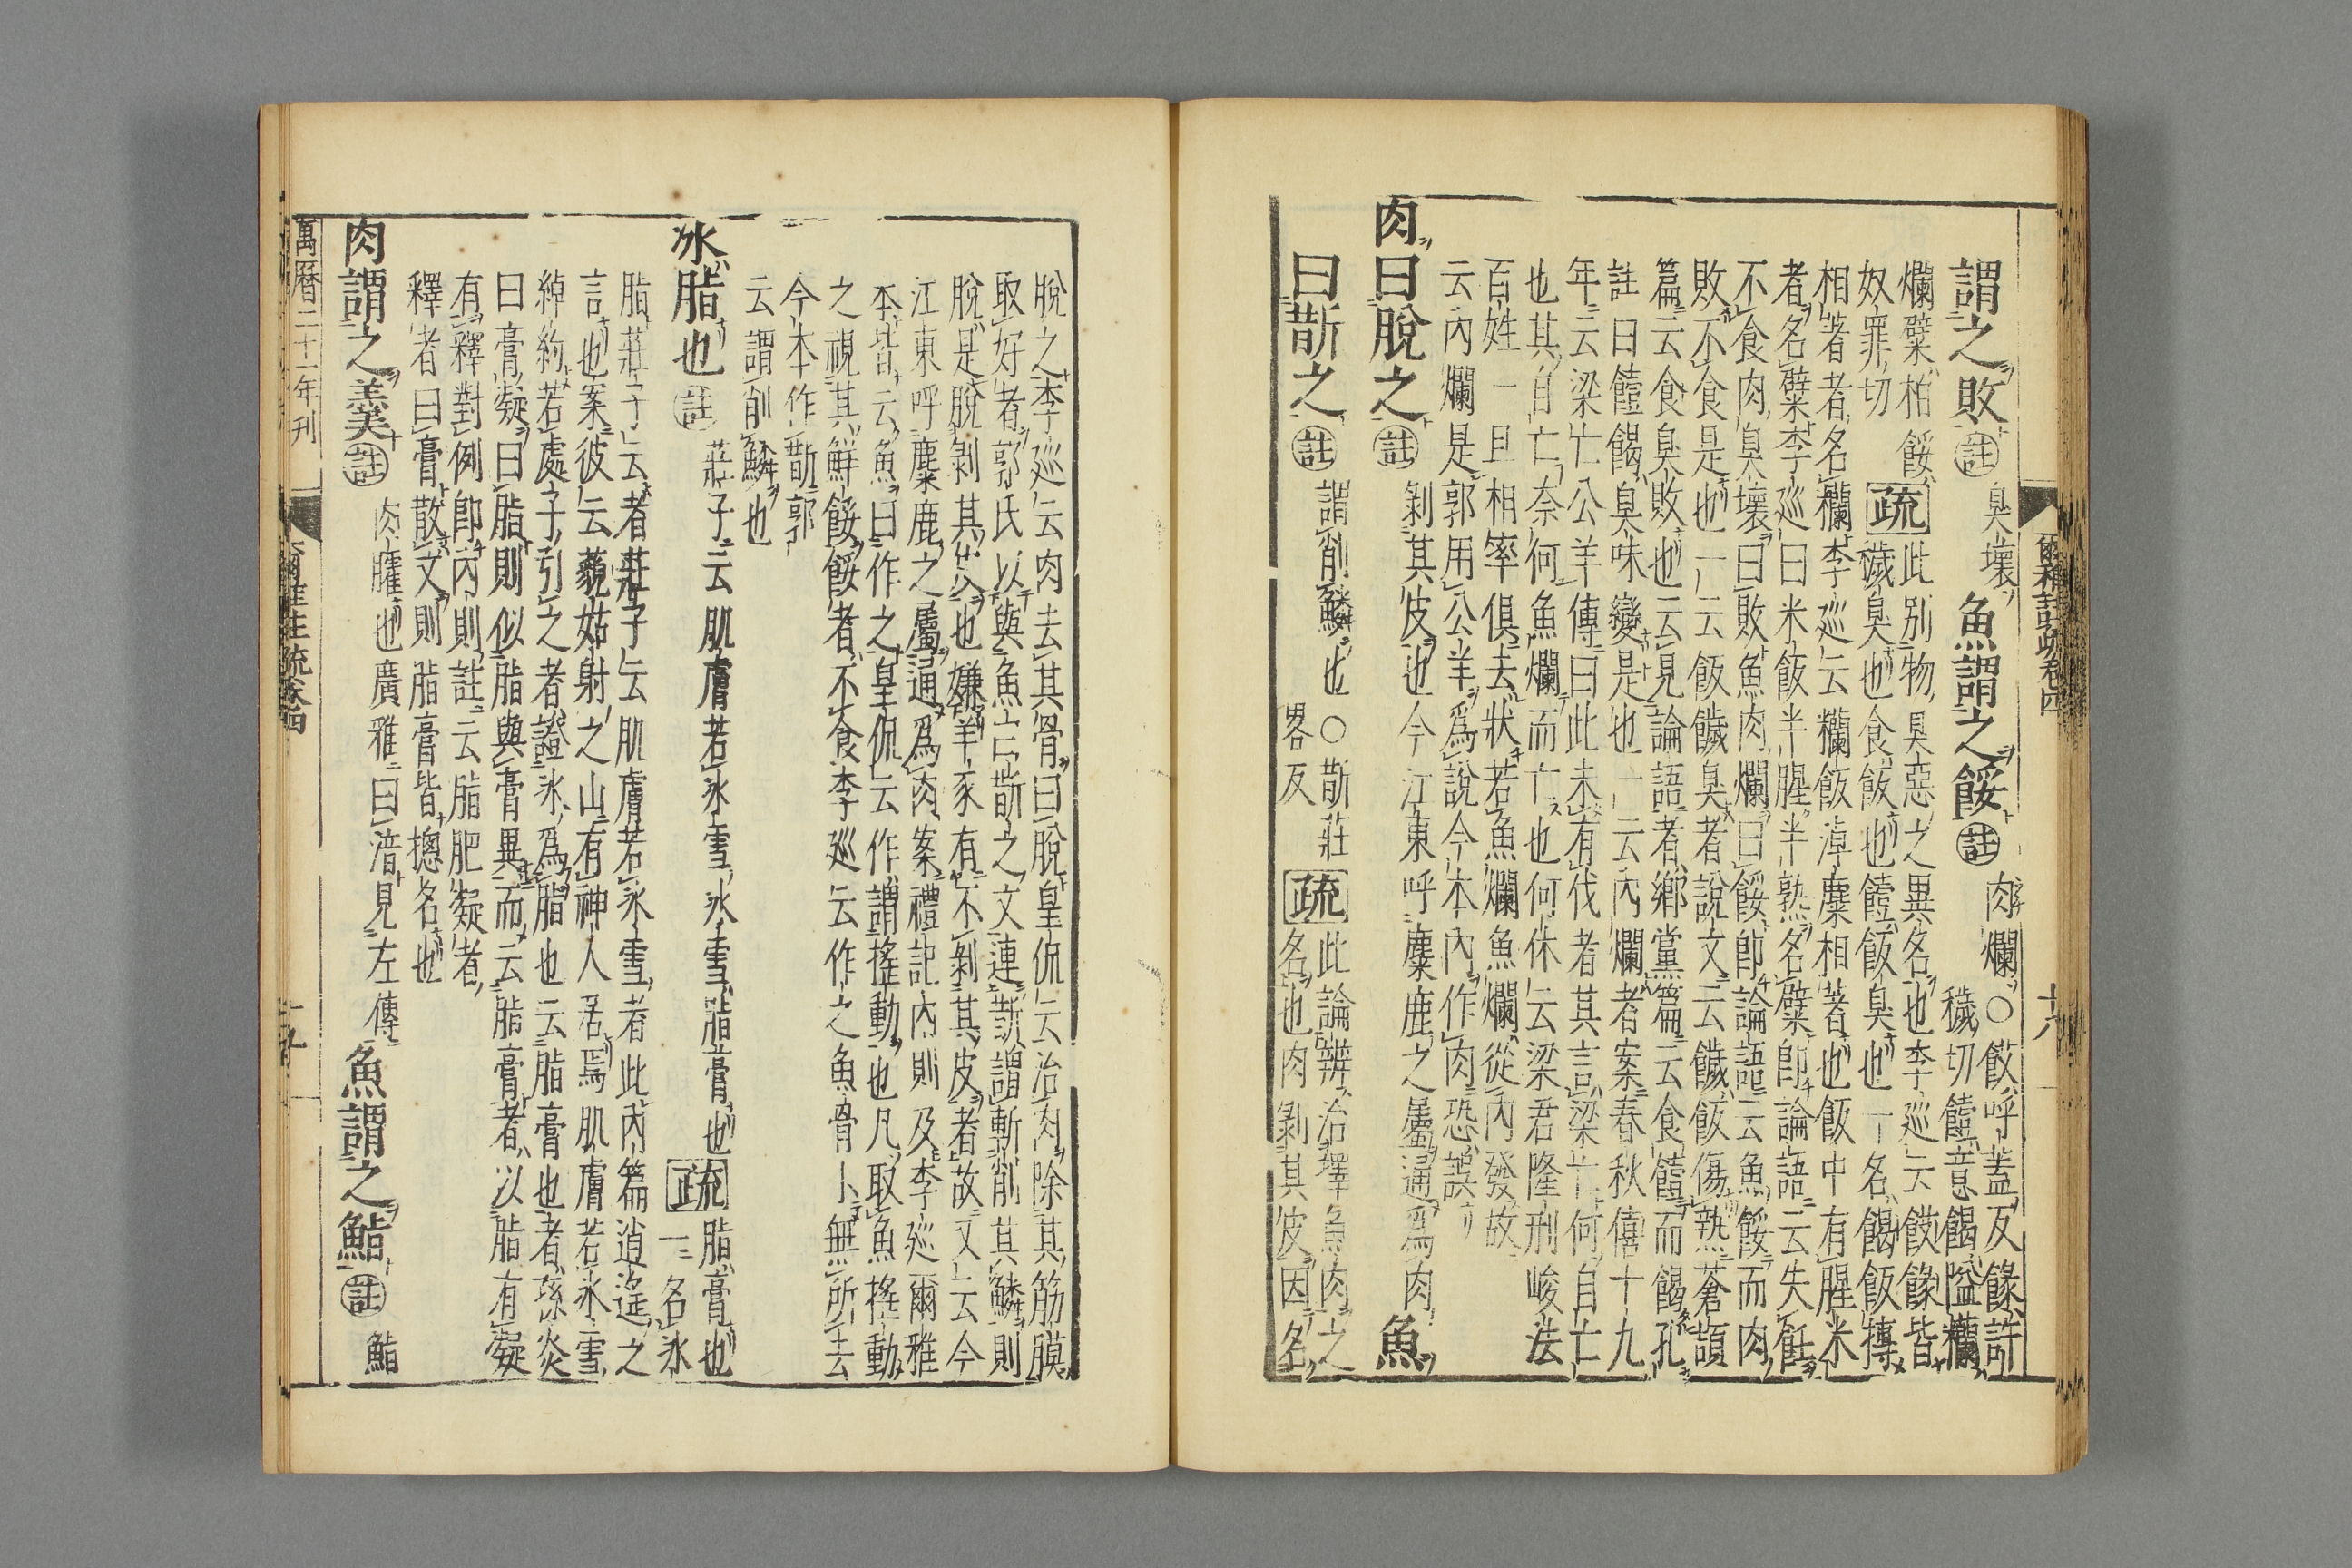 爾雅註疏卷四
謂之敗註臭壞魚謂之餒註肉爛○餀呼蓋反餯許
穢切饐意餲隘欗
爛糪柏餒疏此別物臭惡之異名也李巡云餀餯皆
奴罪切穢臭也食飯也饐飯臭也一名餲飯摶
相著者名欗李巡云欗飯淖麋相著也飯中有腥米
者名糪李巡曰米飯半腥半熟名糪即論語云失飪
不食肉臭壞曰敗魚肉爛曰餒即論語云魚餒而肉
敗不食是也一云飯饖臭者說文云饖飯傷熱蒼頡
篇云食臭敗也云見論語者鄉黨篇云食饐而餲孔
註曰饐餲臭味變是也一云內爛者案春秋僖十九
年云梁亡公羊傳曰此未有伐者其言梁亡何自亡
也其自亡奈何魚爛而亡也何休云梁君隆刑峻法
百姓一旦相率俱去狀若魚爛魚爛從內發故
云內爛是郭用公羊為說今本內作肉恐誤
肉曰脫之註剝其皮也今江東呼麋鹿之屬通為肉魚
曰斮之註謂削鱗也○斮莊
畧反疏此論辨治擇魚肉之
名也肉剝其皮因名
脫之李巡云肉去其骨曰脫皇侃云治肉除其筋膜
取好者郭氏以與魚曰斮之文連斮謂斬削其鱗則
脫是脫剝其皮也嫌羊豕有不剝其皮者故又云今
江東呼麋鹿之屬通為肉案禮記內則及李巡爾雅
本皆云魚曰作之皇侃云作謂搖動也凡取魚搖動
之視其鮮餒餒者不食李巡云作之魚骨小無所去
今本作斮郭
云謂削鱗也
冰脂也註莊子云肌膚若冰雪冰雪脂膏也疏脂膏也
一名冰
脂莊子云者莊子云肌膚若冰雪者此內篇逍遙之
言也案彼云藐姑射之山有神人居焉肌膚若冰雪
綽約若處子引之者證冰為脂也云脂膏也者孫炎
曰膏凝曰脂則似脂與膏異而云脂膏者以脂有凝
有釋對例即內則註云脂肥凝者
釋者曰膏散文則脂膏皆摠名也
肉謂之羹註肉臛也廣雅曰湆見左傳魚謂之鮨註鮨
萬曆二十一年刊